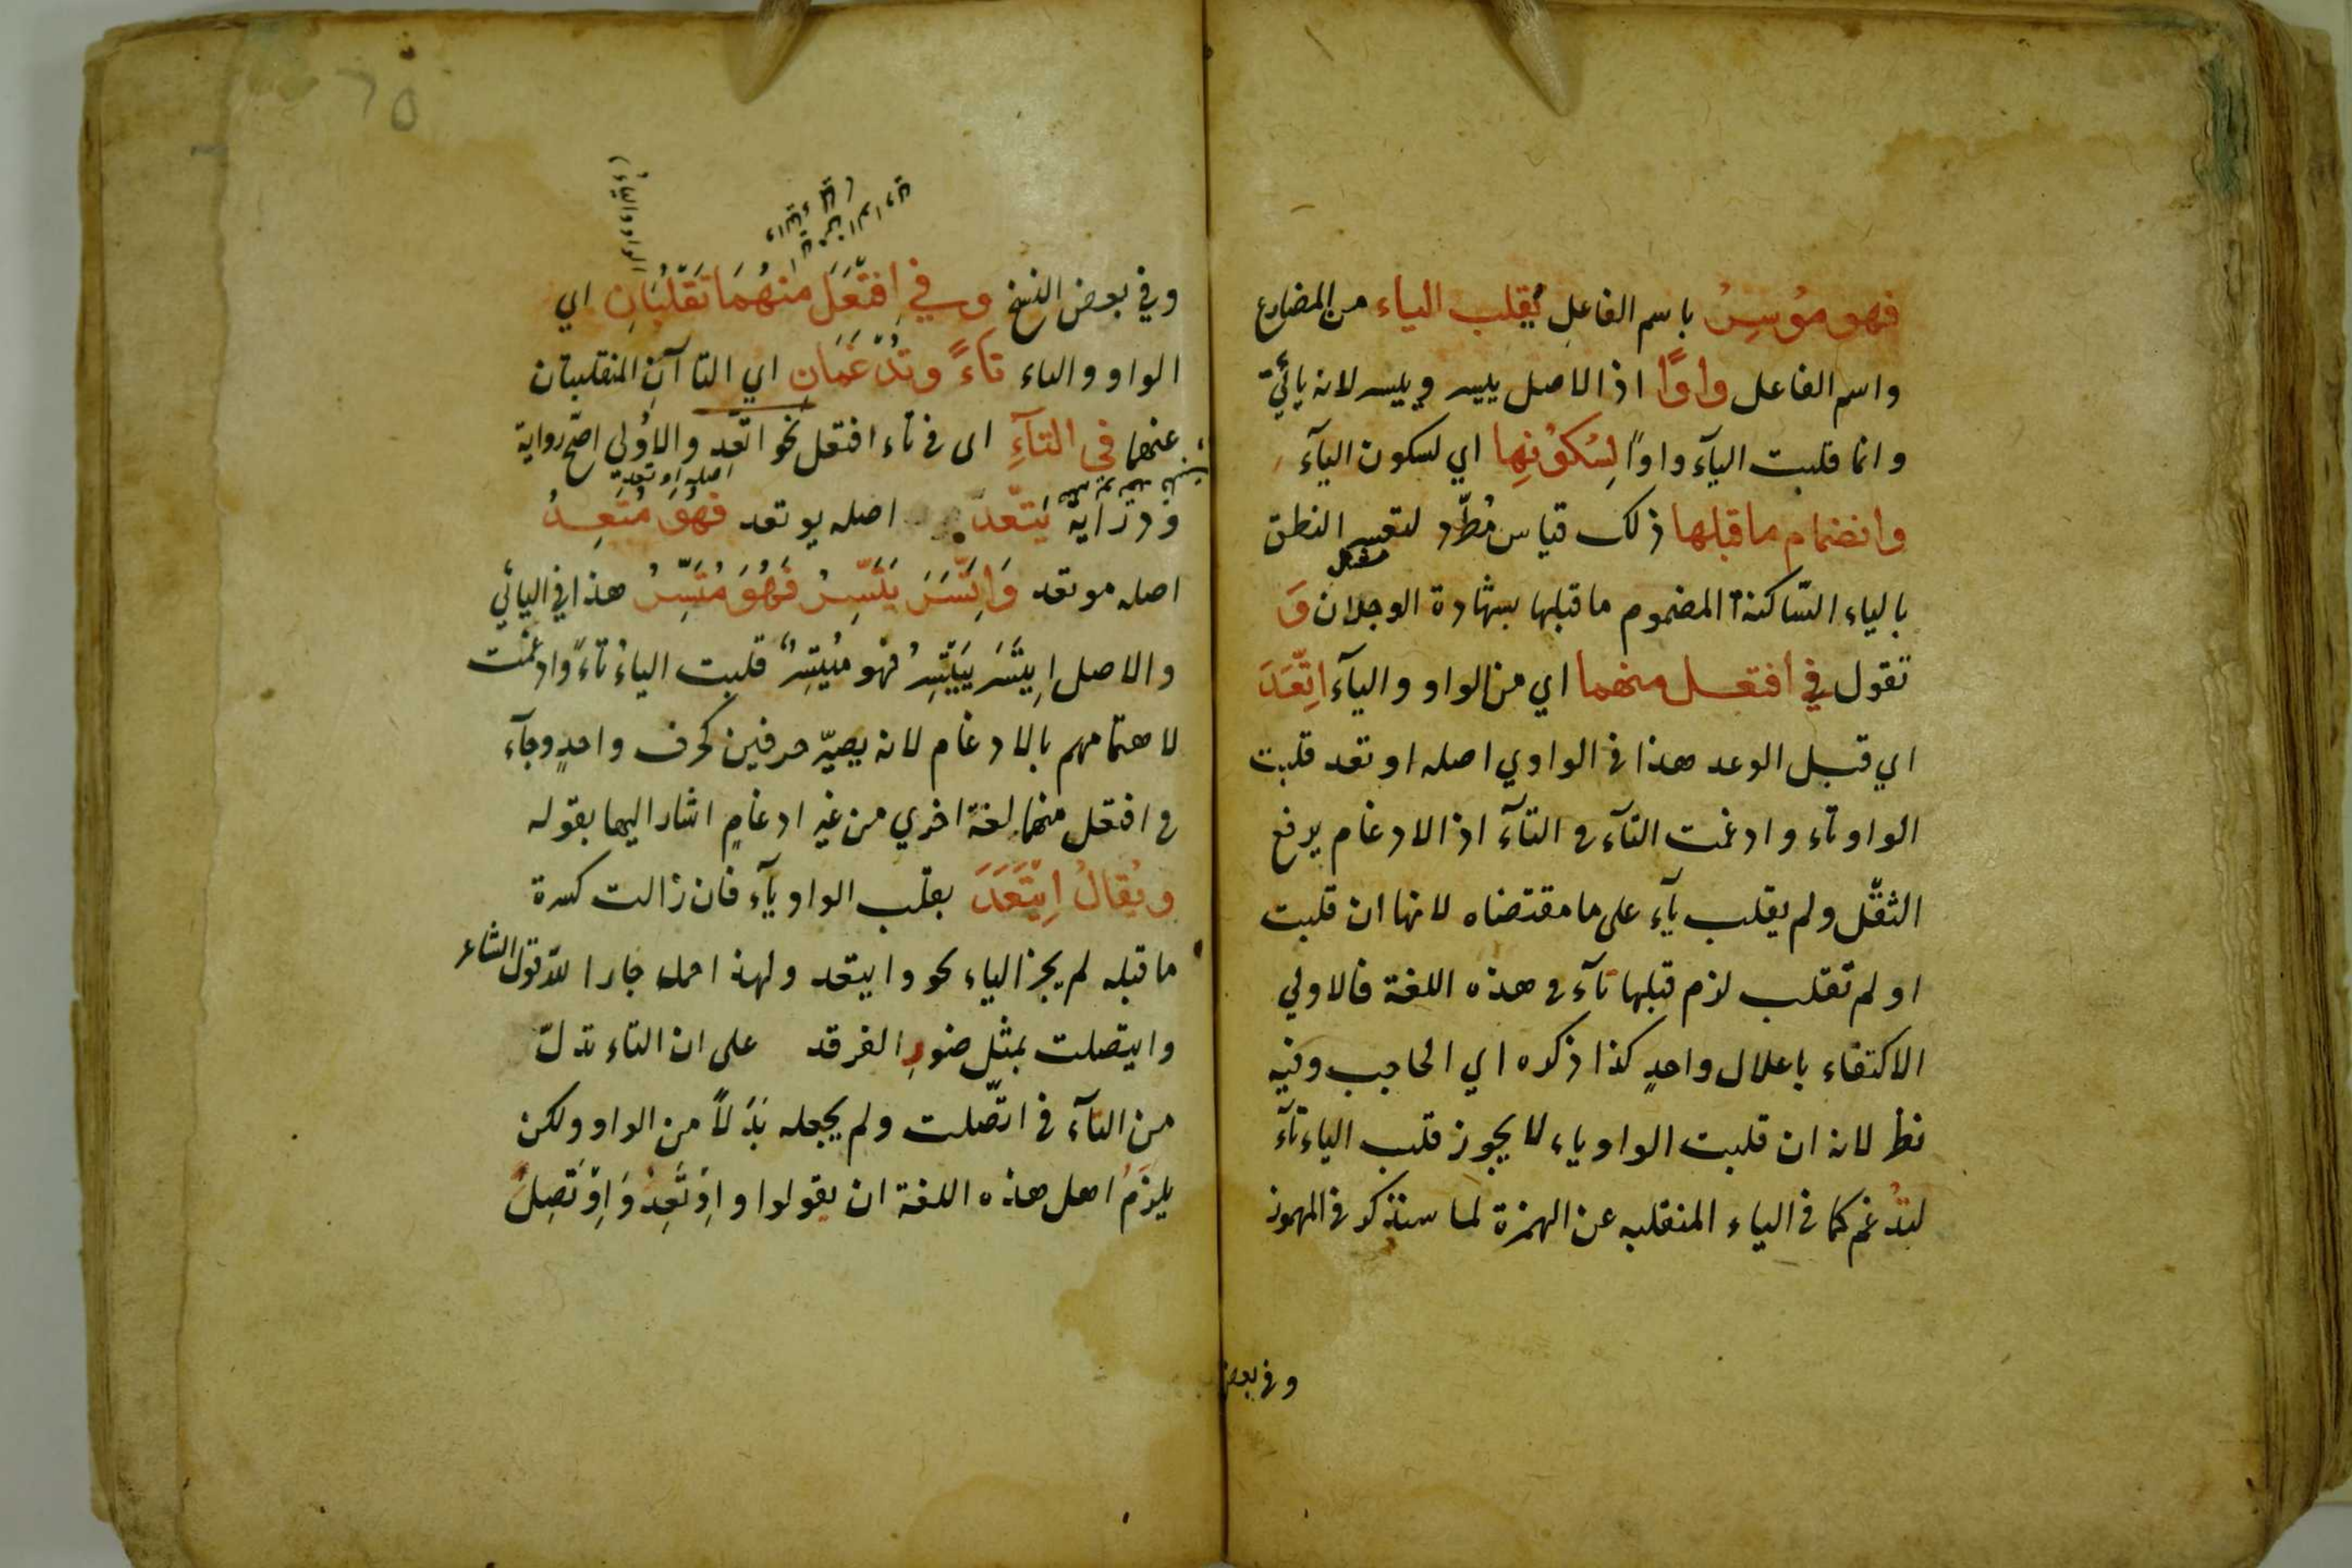 فهو مُوسِرٌ باسم الفاعل يُقلب الياء من المضارع
واسم الفاعل واوًا اذ الاصل ييسر وييسر لانه يائيّ
وانما قلبت اليآء واوًا لِسُكُونِها اي لسكون اليآء
وانضمام ما قبلها ذلك قياس مُطّرد لتعسر النطق
بالياء السّاكنة المضموم ما قبلها بشهادة الوجدان وَ
تقول في افتعل منهما اي من الواو واليآء اتَّعَدَ
اي قبل الوعد هذا في الواوي اصله اوتعد قلبت
الواو تاء وادغمت التآء في التآء اذ الادغام يرفع
الثقل ولم يقلب يآء على ما مقتضاه لانها ان قلبت
او لم تقلب لزم قبلها تآء في هذه اللغة فالاولي
الاكتفاء باعلال واحدٍ كذا ذكره اي الحاجب وفيه
نظر لانه ان قلبت الواو ياء لا يجوز قلب الياء تآء
لتدغم كما في الياء المنقلبه عن الهمزة لما سنذكر في المهموز
وفي بعض
٦٥
الواو والياء
وفي بعض النسخ وفي افتَعَلَ منهُمَا تُقلَبَانِ اي
الواو والياء تاءً وتُدْغَمَانِ اي التاآنِ المنقلبتان
عنهما في التآءِ اى في تاء افتعل نحو اتّعد والاُولي اصحّ رواية
اصله اوتعد
ودراية يَتّعدُ اصله يوتعد فهُوَ مُتّعِدٌ
اصله موتعد وَاتَّسَرَ يَتَّسِرُ فَهُوَ مُتَّسِرٌ هذا في اليائي
والاصل اِيتَسَرَ يَيْتَسِرُ فهو مُيْتَسِرٌ قلبت الياءُ تاءً وادغمت
لاهتمامهم بالادغام لانه يصيّر حرفين كحرف واحدٍ وجآء
في افتعل منهما لغة اخري من غير ادغامٍ اشار اليها بقوله
ويُقالُ اِيْتَعَدَ بقلب الواو يآء فان زالت كسرة
ما قبله لم يجز الياء نحو وايتعد ولهذا قول الشاعر
وايتصلت بمثل ضوءِ الفرقد على ان التاء تدلّ
من التآء في اتّصلت ولم يجعله بَدَلاً من الواو ولكن
يلزَمُ اهل هذه اللغة ان يقولوا واِوْتَعِدْ وَاِوْتَصِلْ